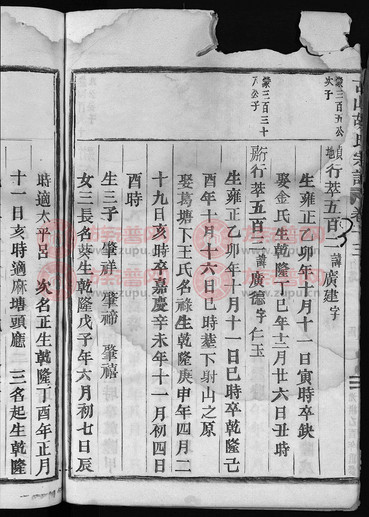 蒙三百五公
次子
貞地行莘五百二諱廣建字
生雍正乙卯年十月十一日寅時卒缺
娶金氏生乾隆丁巳年十二月廿六日丑時
蒙三百三十
八公子
行莘五百三諱廣德字仁玉
生雍正乙卯年十月十一日巳時卒乾隆己
酉年十月十六日巳時塟下射山之原
娶葛塘下王氏名祿生乾隆庚申年四月二
十九日亥時卒嘉慶辛未年十一月初四日
酉時
生三子 肇祥 肇禘 肇禧
女三長名葵生乾隆戊子年六月初七日辰
時適太平呂 次名正生乾隆丁酉年正月
十一日亥時適麻塘頭應 三名起生乾隆
族譜网
www.zupu.cn